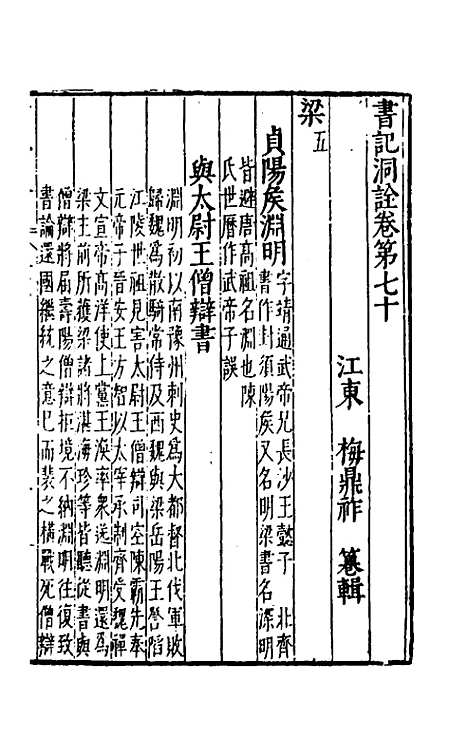 書記洞詮卷第七十
江東 梅鼎祚 纂輯
梁五
貞陽侯淵明字靖通武帝兄長沙王懿子 北齊
書作封須陽侯又名明梁書名深明
皆避唐高祖名淵也陳
氏世曆作武帝子誤
與太尉王僧辯書
淵明初以南豫州刺史為大都督北伐軍敗
歸魏為散騎常侍及西魏與梁岳陽王詧陷
江陵世祖見害太尉王僧辯司空陳霸先奉
元帝子晉安王方智以太宰承制齊受魏禪
文宣帝高洋使上黨王渙率衆送淵明還為
梁主前所獲梁諸將湛海珍等皆聽從書與
僧辯將屆壽陽僧辯拒境不納淵明往復致
書論還國繼統之意巳而裴之橫戰死僧辯